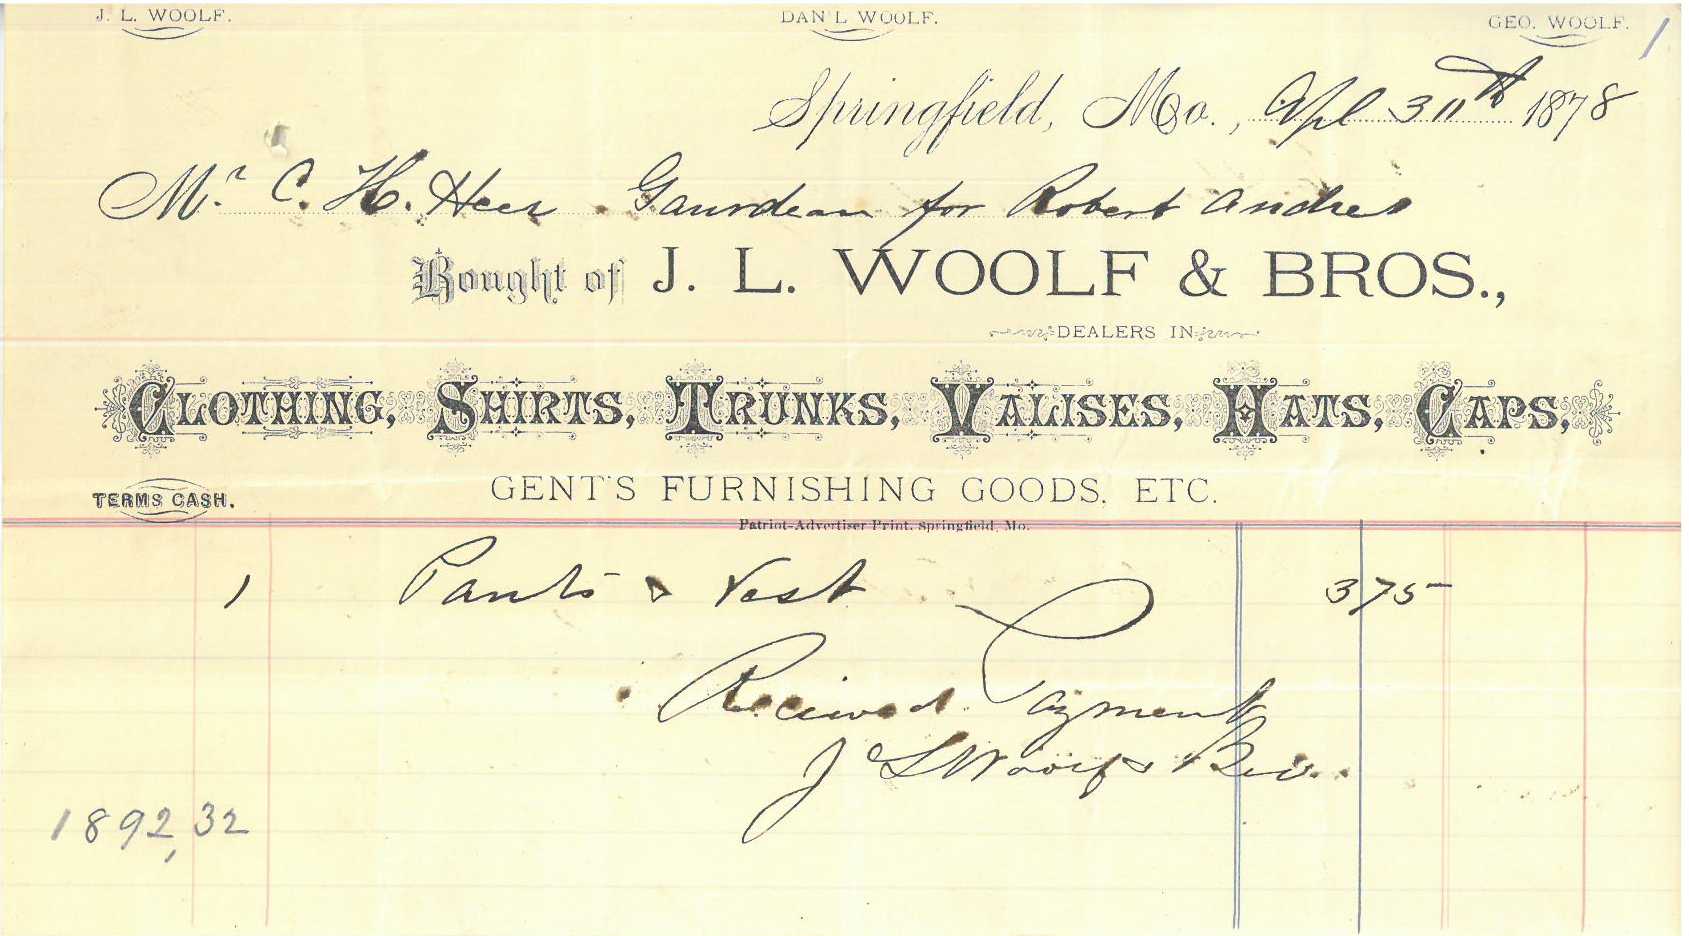 J. L. WOOLF. DAN'L WOOLF. GEO. WOOLF. 1
Springfield, Mo., Apl 30th 1878
Mr. C. H. Heer Gaurdean for Robert Andres
Bought of J. L. WOOLF & BROS.,
DEALERS IN
CLOTHING, SHIRTS, TRUNKS, VALISES, HATS, CAPS,
TERMS CASH. GENT'S FURNISHING GOODS, ETC.
Patriot-Advertiser Print, Springfield, Mo.
1 Pants & Vest 3 75
Recieved Payment
J L Woolf & Bro.
1892,32